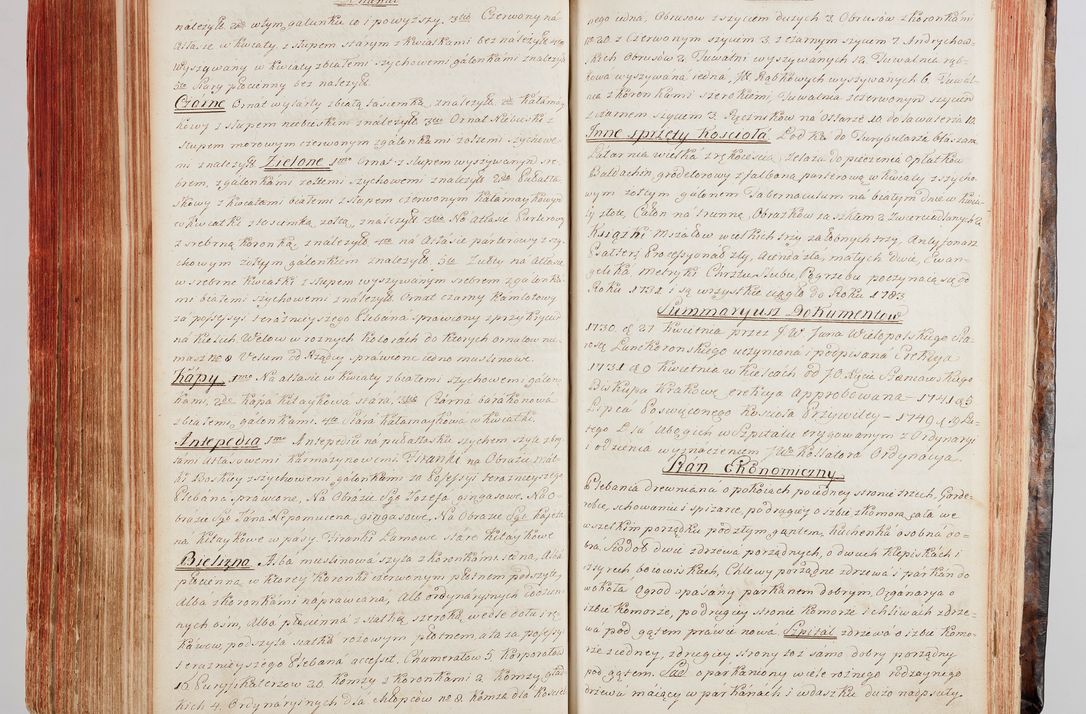 należyte 2do w tym galonku co i powyższy. 3tio Czerwony na
Atłasie w kwiaty, z słupem starym z kwiatkami bez należyt. 4to
Wyszywany w kwiaty z białemi szychowemi galonkami z należyt
5to Stary płócienny bez należyt.
Czarne Ornat wytarty z białą tasiemką z należyt. 2do Kałamay
kowy z słupem niebieskim z należyt. 3tio Ornat Niebieski z
słupem morowym czerwonym z galonkami żołtemi szychowe
mi z należyt. Zielone 1mo Ornat z słupem wyszywanym sre
brem, z galonkami żołtemi szychowemi z należyt. 2do
skowy z kwiatami białemi z słupem czerwonym kałamaykowym
w kwiatki z tasiemką żołtą, z należyt. 3tio Na Atłasie Parterowy
z srebrną koronką, z należyt. 4to na Atłasie parterowy z szy-
chowym żołtym galonkiem z należyt. 5to Żołty na Atłasie
w srebrne kwiatki z słupem wyszywanym srebrem z galonka-
mi białemi szychowemi z należyt. Ornat czarny kamlotowy
za possessyi teraznieyszego Plebana sprawiony z przykryciem
na Kielich Welow w roznych kolorach do ktorych ornatow nu-
masz no 8 Vesum do sprawione iedno muslinowe.
Kapy 1mo Na atłasie w kwiaty z białemi szychowemi galon-
kami, 2do Kapa kitaykowa stara, 3tio Czarna barakanowa
z białemi galonkami. 4to Stara kałamaykowa w kwiatki.
Antepedia 1mo Antepedium na pułatłasku szychem szyte z bry-
zami Atłasowemi karmazynowemi Firanki na Obrazie Mat
ki Boskiey z szychowemi galonkami za Possessyi teraznieyszego
Plebana sprawione, Na Obrazie Sgo Jozefa gingasowe, Na O-
brazie Sgo Jana Nepomucena gingasowe, Na Obrazie Sgo Kajeta
na Kitaykowe w pasy. Firanki Lamowe stare Kitaykowe
Bielizna Alba muslinowa szyta z koronkami iedna, Alba
płocienna w ktorey koronki czerwonym płotnem podszyte,
Alba z koronkami naprawiana, Alb ordynaryinych
nych ośm, Alba płocienna z siatką szeroką wedle dołu i rę-
kawow, podszyta siatka rożowym płotnem, ata za possessyi
teraznieyszego Plebana accessit. Chumerałow 5. Korporałow
16. Puryfikaterzow 20. Komży z koronkami 2. Komży gład-
kich 4. Ordynaryinych dla chłopcow no 8. Komża dla Kosciel
nego iedna, Obrusow z szyciem duzych 3. Obrusow z koronkami
no 20. z Czerwonym szyciem 3. z czarnym szyciem 7. Andrychow-
skich Obrusow 2. Tuwalni wyszywanych 12. Tuwalnia rąb-
kowa wyszywana iedna, Rąbkowych wyszywanych 6. Tuwal-
nia z koronkami szerokiemi, Tuwalnia z czerwonym szyciem
z czarnem szyciem 3. Ręcznikow na Ołtarze 10. do Lawaterza 10.
Inne sprzęty Kościoła Łodka do Turybularza Blaszana
Latarnia wielka z rękoieścią, żelaza do pieczenia opłatkow
Baldachin grodetorowy z falboną parterową w kwiaty z szycho-
wym żołtym galonem Tabernaculum na białym dnie w kwia-
ty złote, Całon na trunnę, Obrazkow za szkłem 2. Zwierciadlanych 2.
Książki Mszałow wielkich trzy żałobnych trzy, Antyfonarz
Psałterz, Processyonał zły, Agenda zła, małych dwie, Ewan-
gelika, metryki Chrztu Ślubu, Pogrzebu poczynaią się od
Roku 1731 i są wszystkie ciągłe do Roku 1783
Summaryusz Dokumentow
1730. d 27 kwietnia przez J W. Jana Wielopolskiego Sta-
rostę Lanckoronskiego uczyniona i podpisana Erekcya
1731 d 0 kwietnia w Kielcach od J. O. Xcia Szaniawskiego
Biskupa Krakow: erekcya Approbowana – 1741 d 23
Lipca Poświęconego Kościoła Przywiley – 1749 d 19 Lu-
tego Dla Ubogich w Szpitalu erygowanym z Ordynaryi
i odzienia wyznaczeniem JWo Kollatora Ordynacya.
Stan Ekonomiczny
Plebania drewniana o pokoiach po iedney stronie trzech, Garde-
robie, schowaniu i spizarce, po drugiey o izbie z komorą, cała we
wszelkim porządku pod złym gątem, kuchenka osobna do-
bra. Stodoł dwie z drzewa porządnych, o dwuch klepiskach i
czterech borowiskach, Chlewy porządne z drzewa i parkan do
wokoła Ogrod opasany parkanem dobrym, Organarya o
izbie komorze, po drugiey stronie komorze i chliwach z drze-
wa pod gątem prawie nowa. Szpital z drzewa o izbie komo-
rze z iedney, z drugiey strony toż samo dobry porządny
pod gątem. Sad oparkaniony wiele rożnego rodzaynego
drzewa maiący w parkanach i w daszku dużo nadpsuty.